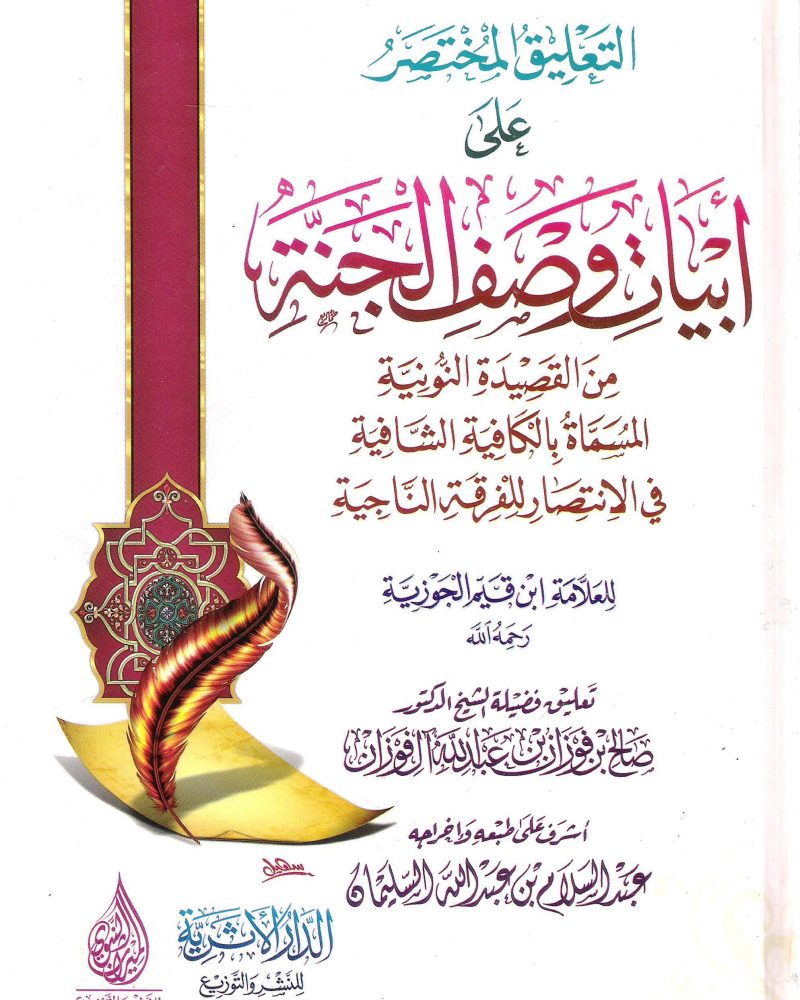 التعليق المختصر
على
أبيات وصف الجنة
من القصيدة النونية
المسماة بالكافية الشافية
في الانتصار للفرقة الناجية
للعلامة ابن قيم الجوزية
رحمه الله
تعليق فضيلة الشيخ الدكتور
صالح بن فوزان بن عبد الله الفوزان
أشرف على طبعه وإخراجه
عبد السلام بن عبد الله السليمان
الدار الأثرية
للنشر والتوزيع